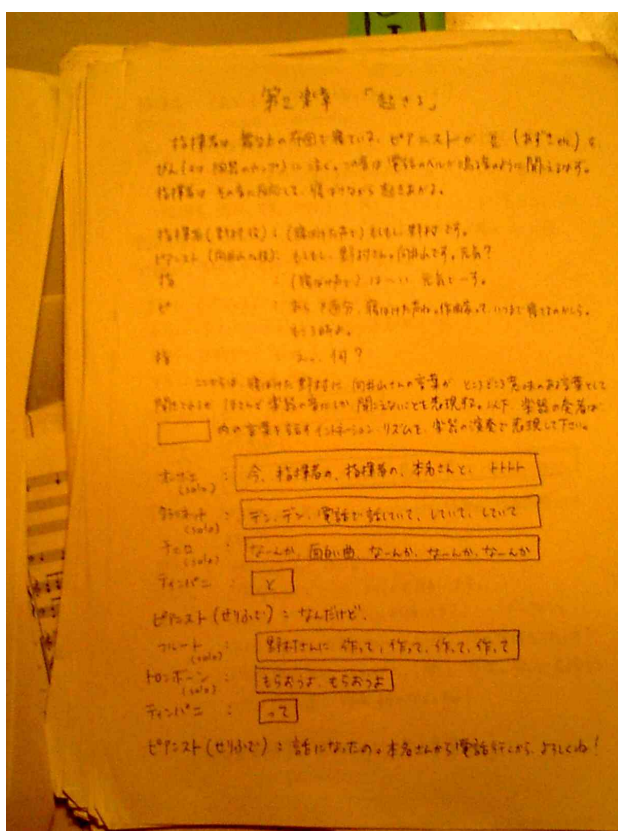 第2楽章 「起きる」
指揮者は、舞台上の布団で寝ている。ピアニストが豆(あずきetc)を
びん(または陶器のカップ)に注ぐ。この音は電話のベルが鳴る音のように聞こえるはず。
指揮者はその音に反応して、寝ぼけながら起きあがる。
指揮者(野村役):(寝ぼけた声で)もしもし、野村です。
ピアニスト(向井山さん役):もしもし、野村さん。向井山です。元気?
指 :(寝ぼけ声で)はーい 元気でーす。
ピ : あら 随分、寝ぼけた声ね。作曲家って、いつまで寝てるのかしら。
もう 時よ。
指 : えっ、何?
ここからは、寝ぼけた野村に、向井山さんの言葉が ところどころ意味のある言葉として
聞きとれるが、ほとんど楽器の音にしか聞こえないことを表現する。以下、楽器の奏者は
内の言葉を話すイントネーション、リズムを、楽器の演奏で表現して下さい。
オーボエ(solo) : 今、指揮者の、指揮者の、本名さんと、トトトト
クラリネット(solo) : デン、デン、電話で話していて、していて、していて
チェロ(solo) : なーんか、面白い曲、なーんか、なーんか、なーんか
ティンパニ : と
ピアニスト(せりふで):なんだけど、
フルート(solo) : 野村さんに、作って、作って、作って、作って
トロンボーン(solo) : もらおうよ、もらおうよ
ティンパニ : って
ピアニスト(せりふで):話になったの。本名さんから電話行くから、よろしくね!